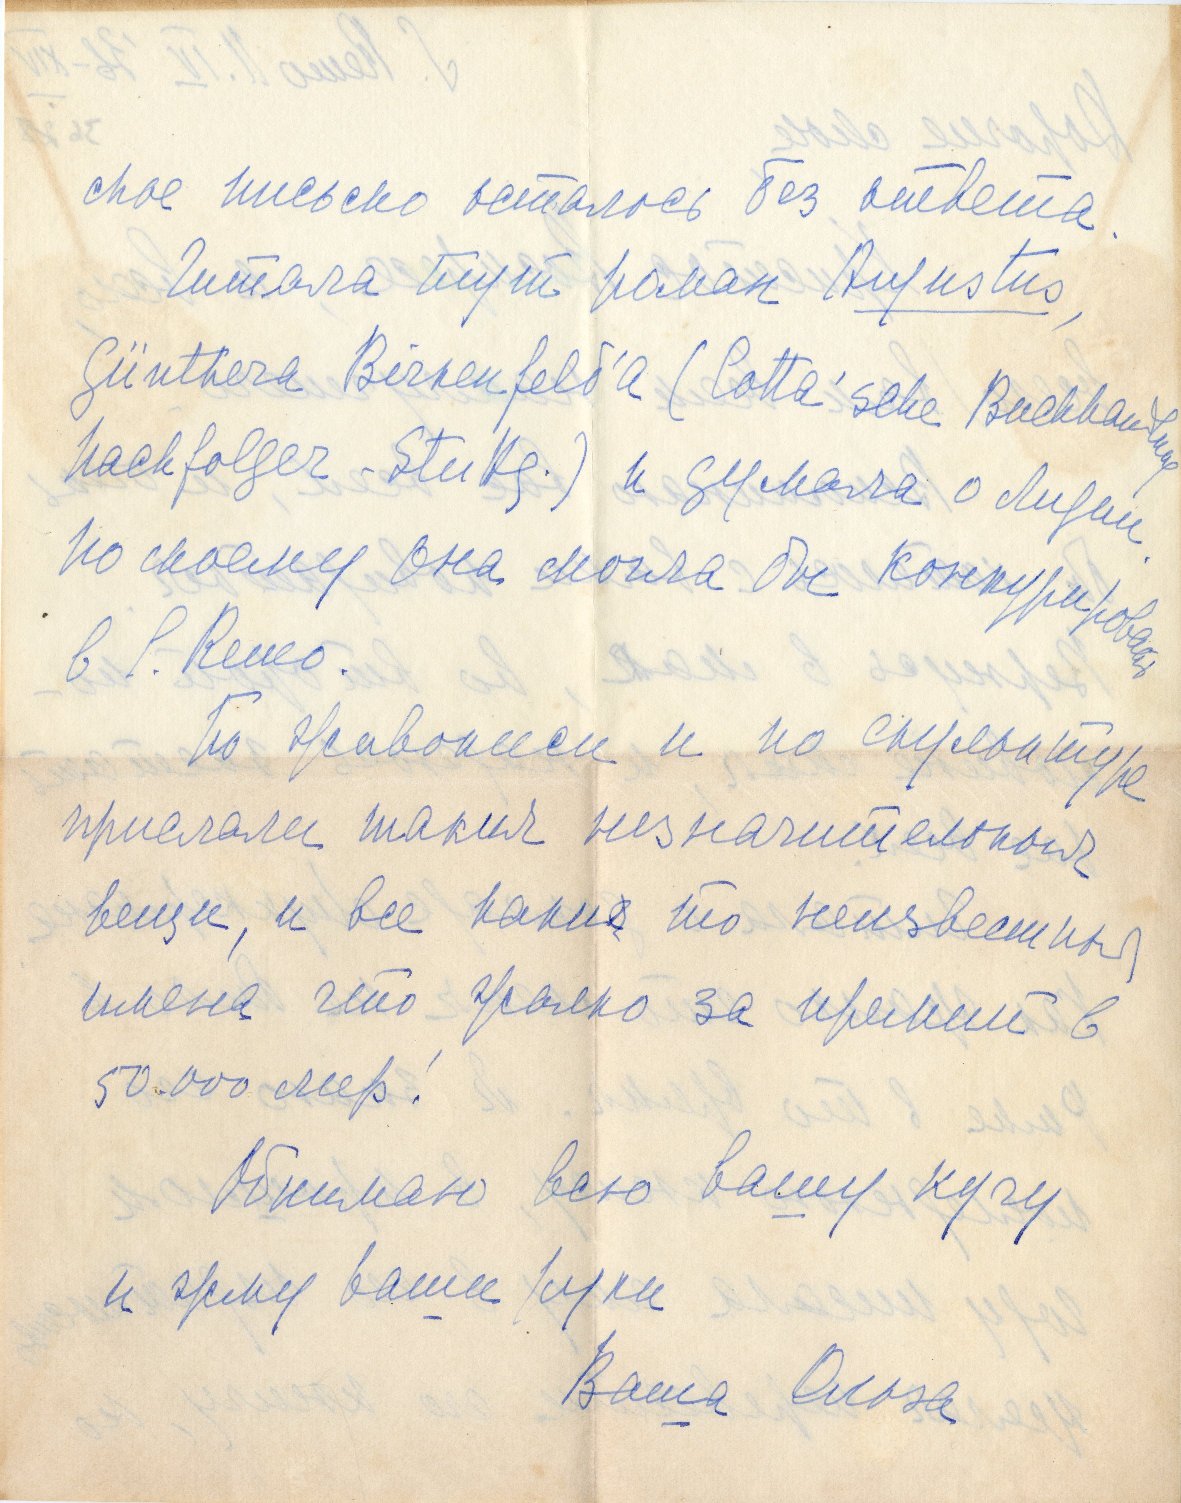 мое письмо осталось без ответа.
Читала тут роман Augustus,
Günthera Birkenfeld'a (Cotta'sche Buchhandlung
Nachfolger - Stuttg.) и думала о Лидии.
По моему она могла бы конкурировать
в S. Remo.
По живописи и по скульптуре
прислали такия незначительныя
вещи, и все какия то неизвестныя
имена что жалко за премии в
50.000 лир!
Обнимаю всю вашу кучу
и жму ваши руки
Ваша Ольга